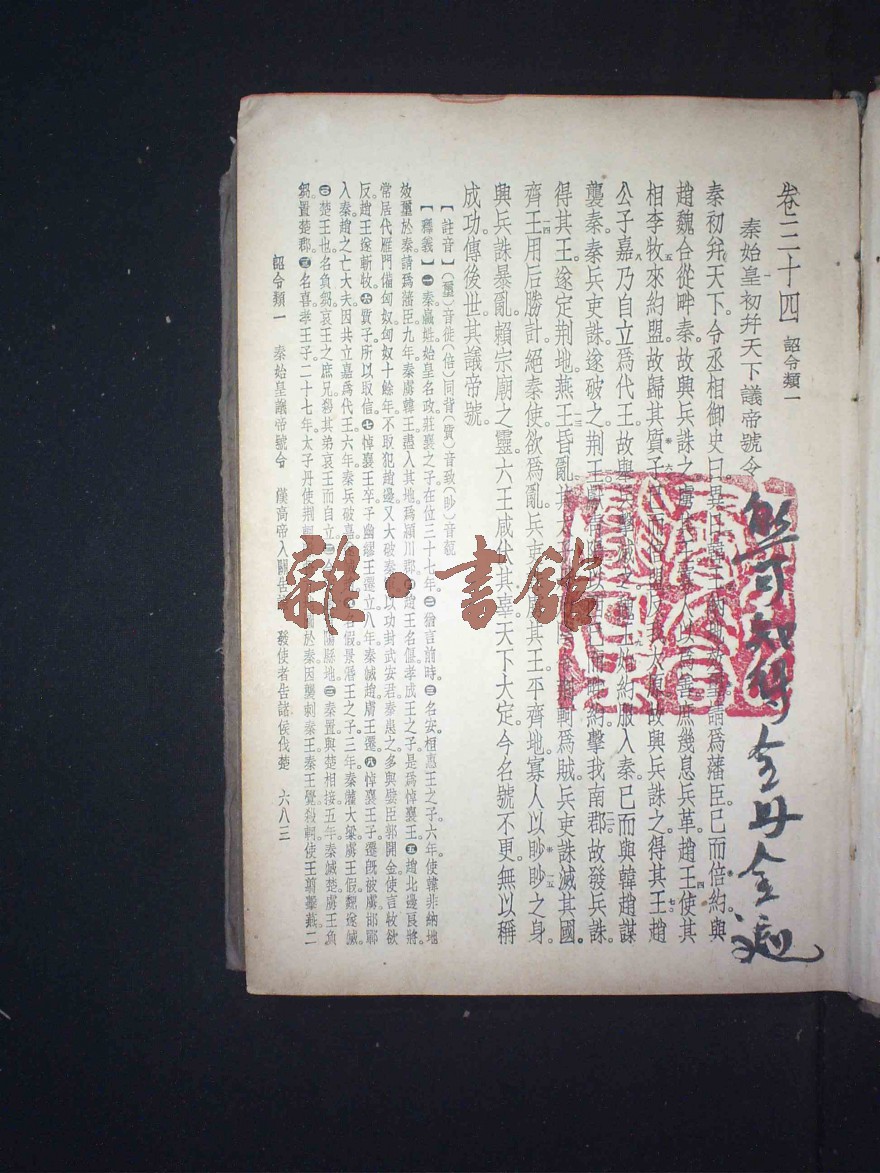 卷三十四 詔令類一
秦始皇初幷天下議帝號令
秦初幷天下。令丞相御史曰。異日韓王納地效璽。請爲藩臣。已而倍約。與
趙魏合從畔秦。故興兵誅之。虜其王。寡人以爲善。庶幾息兵革。趙王使其
相李牧來約盟。故歸其質子。已而倍盟。反我太原。故興兵誅之。得其王。趙
公子嘉乃自立爲代王。故舉兵擊滅之。魏王始約服入秦。已而與韓趙謀
襲秦。秦兵吏誅。遂破之。荆王獻青陽以西。已而畔約。擊我南郡。故發兵誅。
得其王。遂定荆地。燕王昏亂。其太子丹乃陰令荆軻爲賊。兵吏誅滅其國。
齊王用后勝計。絕秦使。欲爲亂。兵吏誅虜其王。平齊地。寡人以眇眇之身。
興兵誅暴亂。賴宗廟之靈。六王咸伏其辜。天下大定。今名號不更。無以稱
成功。傳後世。其議帝號。
【註音】(璽)音徙(倍)同背(質)音致(眇)音藐
【釋義】㊀秦嬴姓。始皇名政。莊襄之子。在位三十七年。㊁猶言前時。㊂名安。桓惠王之子。六年。使韓非納地
效璽於秦。請爲藩臣。九年。秦虜韓王。盡入其地。爲潁川郡。㊃趙王名偃。孝成王之子。是爲悼襄王。㊄趙北邊良將。
常居代雁門。備匈奴。匈奴十餘年。不取犯趙邊。又大破秦 以功封武安君。秦患之。多與嬖臣郭開金。使言牧欲
反。趙王遂斬牧。㊅質子所以取信。㊆悼襄王卒。子幽繆王遷立。八年。秦滅趙。虜王遷。㊇悼襄王子。遷旣被虜。邯鄲
入秦。趙之亡大夫。因共立嘉爲代王。六年。秦兵破嘉。 名假。景湣王之子。三年。秦灌大梁。虜王假。魏遂滅。
楚王也。名負芻。哀王之庶兄。殺其弟哀王而自立。 縣地。 秦置。與楚相接。五年。秦滅楚。虜王負
芻。置楚郡。 名喜。孝王子。二十七年。太子丹使荆軻 於秦。因襲刺秦王。秦王覺。殺軻。使王翦擊薊。二
詔令類一 秦始皇議帝號令 漢高帝入關告 發使者告諸侯伐楚 六八三
雜·書館